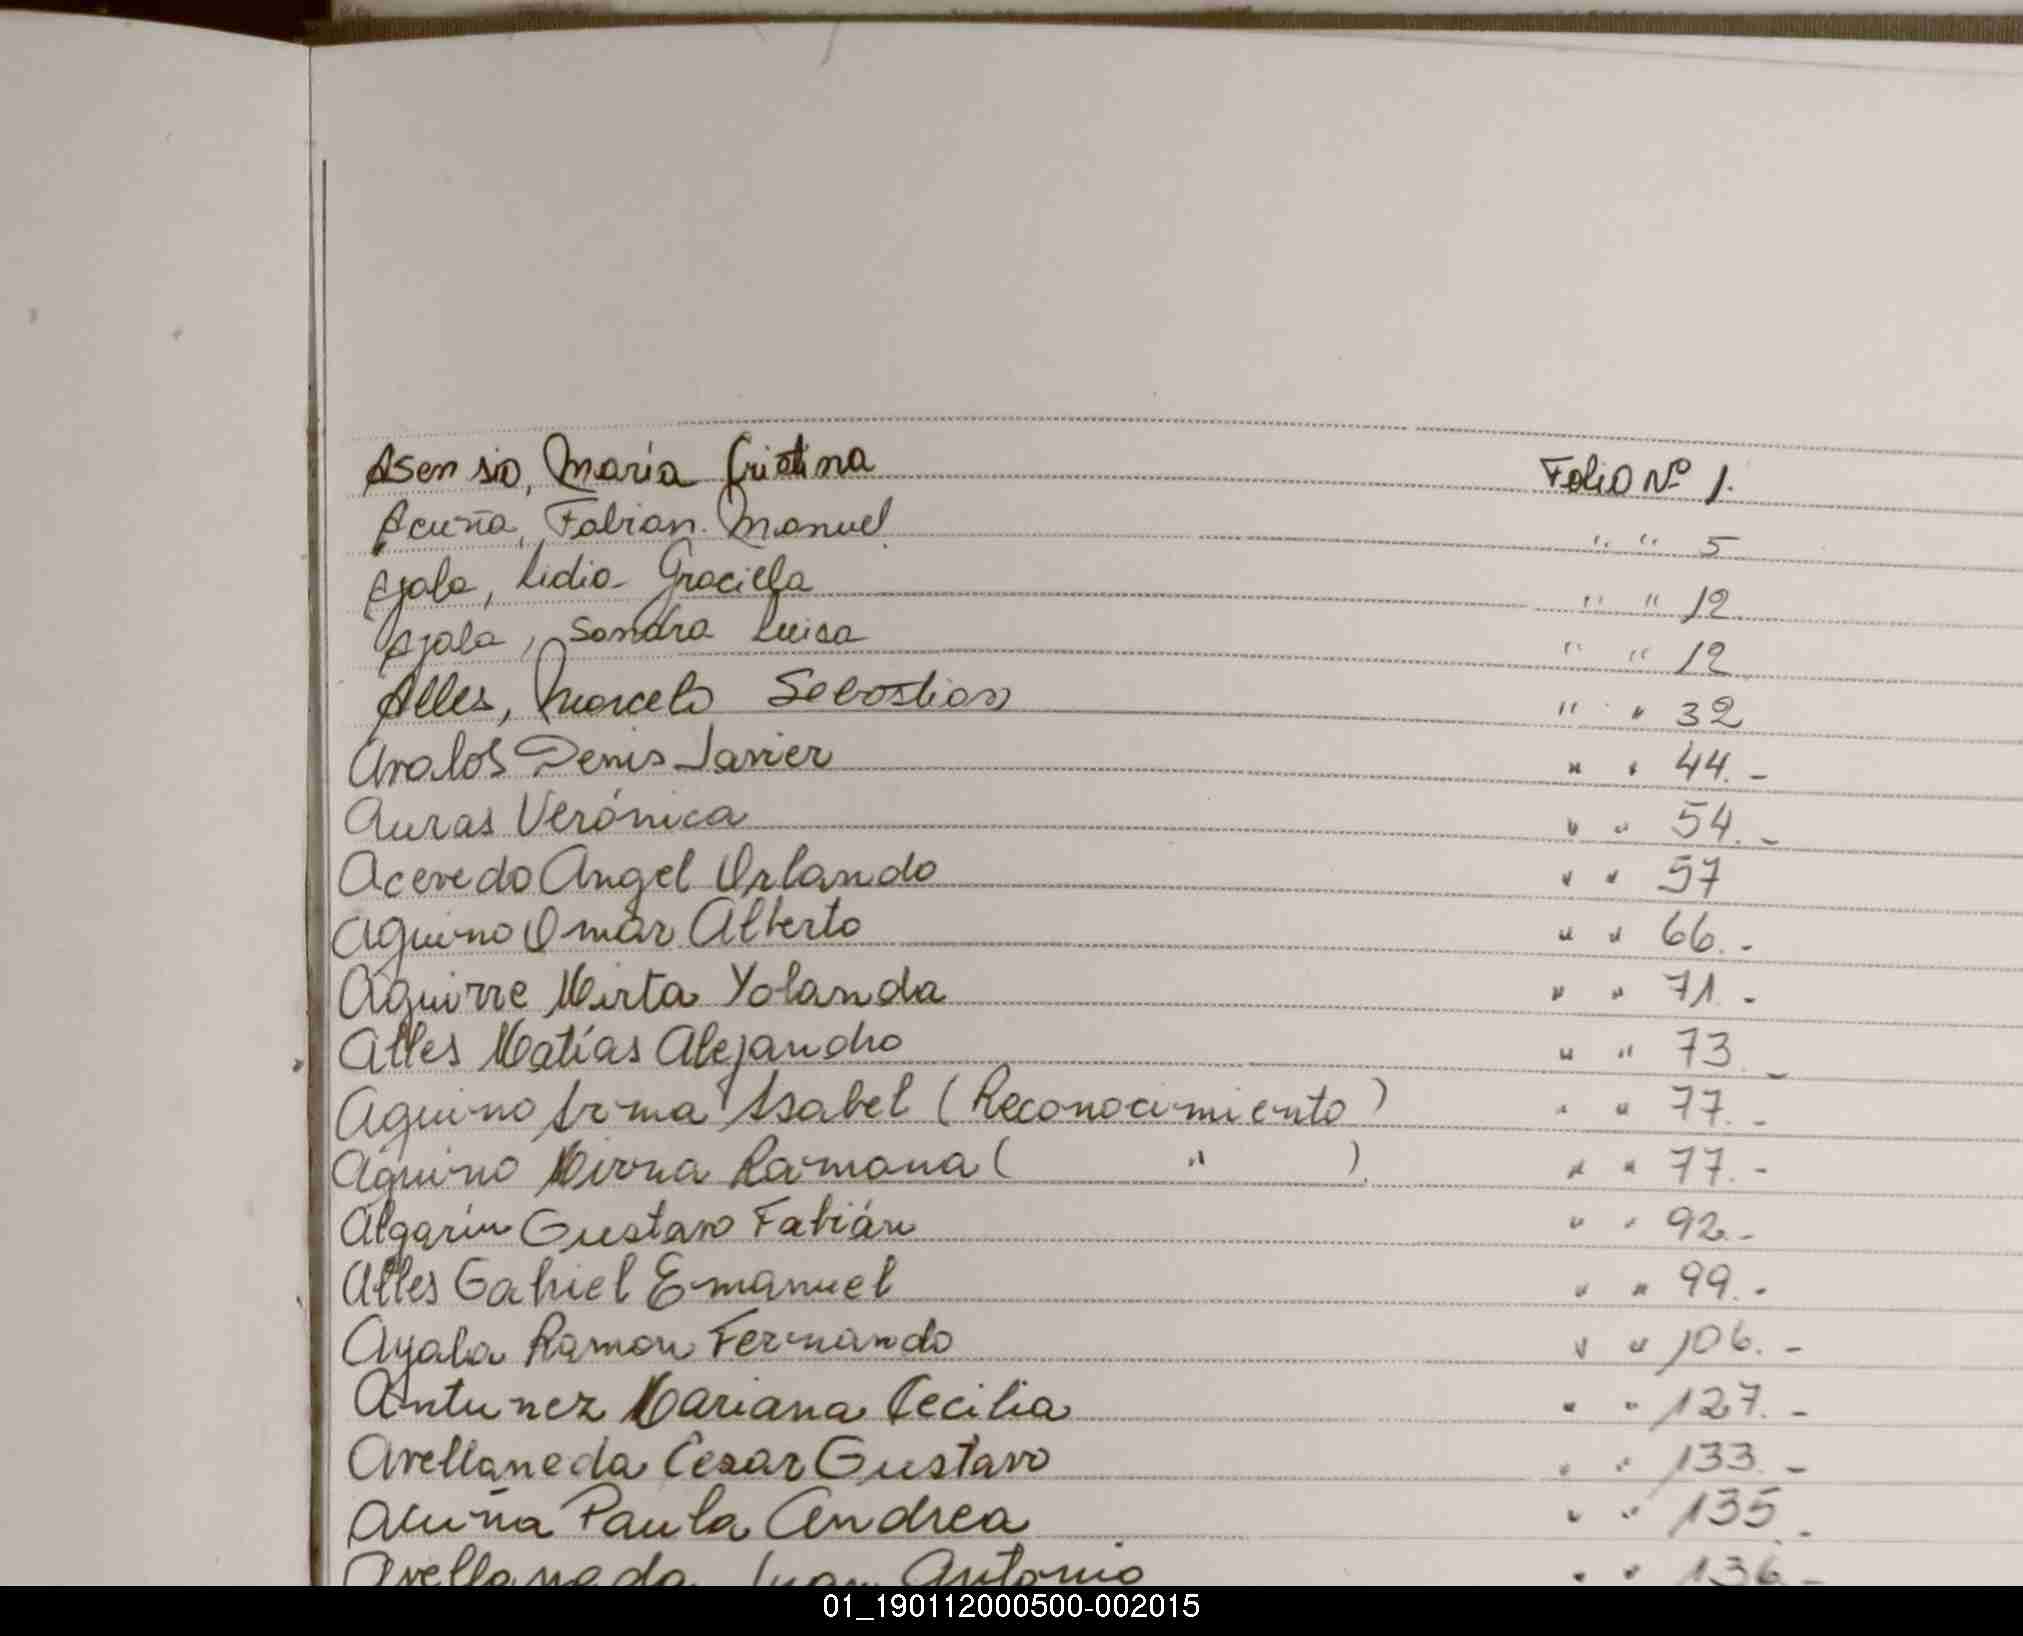 Asensio, María Cristina Folio Nº 1.
Acuña, Fabian Manuel " " 5
Ayala, Lidia Graciela " " 12
Ayala, Sandra Luisa " " 12
Alles, Marcelo Sebastian " " 32
Avalos Denis Javier " " 44.-
Auras Verónica " " 54.-
Acevedo Angel Orlando " " 57
Aquino Omar Alberto " " 66.-
Aguirre Mirta Yolanda " " 71.-
Alles Matías Alejandro " " 73.-
Aquino Irma Isabel (Reconocimiento) " " 77.-
Aquino Mirna Ramona ( " ) " " 77.-
Algarín Gustavo Fabián " " 92.-
Alles Gabriel Emanuel " " 99.-
Ayala Ramon Fernando " " 106.-
Antunez Mariana Cecilia " " 127.-
Avellaneda Cesar Gustavo " " 133.-
Acuña Paula Andrea " " 135.
Avellaneda Juan Antonio " " 136.-
01_190112000500-002015